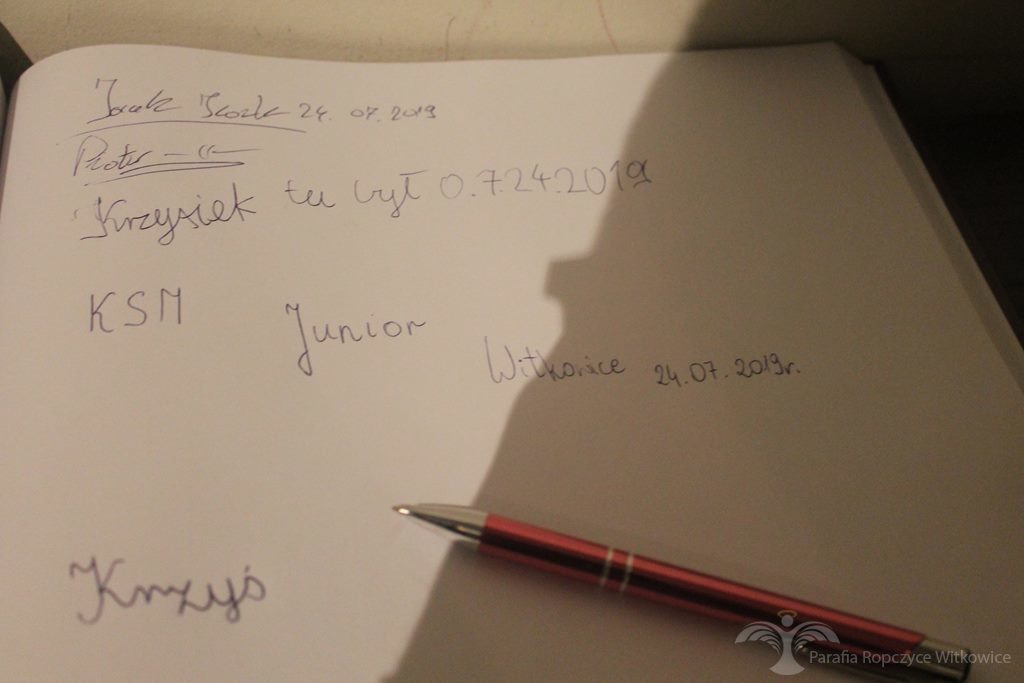 Jacek 24. 07. 2019
Piotr -"-
Krzysiek tu był 0.724.2019
KSM Junior Witkowice 24.07.2019r.
Krzyś
Parafia Ropczyce Witkowice